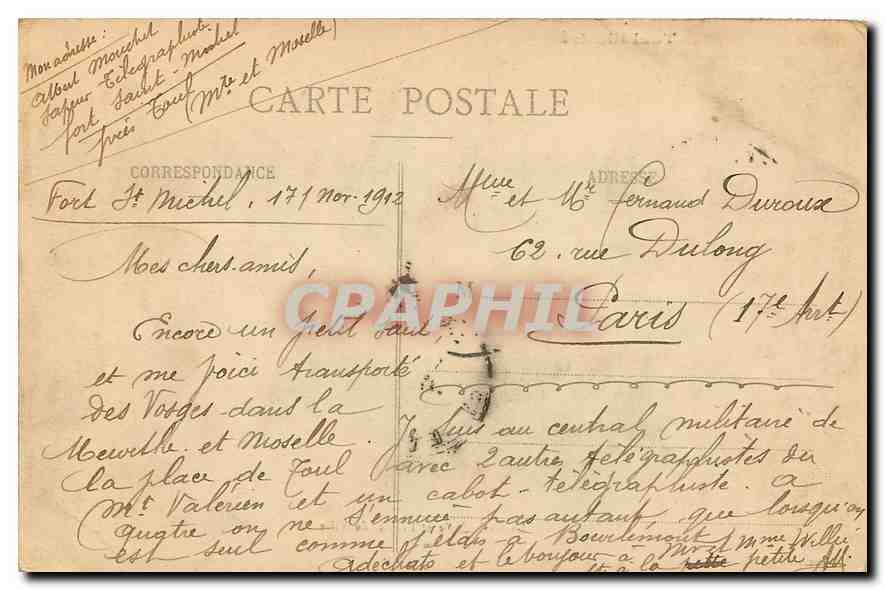 Mon adresse :
Albert Mouchet
Sapeur Télégraphiste
fort Saint-Michel
près Toul
(Mthe et Moselle)
CARTE POSTALE
CORRESPONDANCE
ADRESSE
Fort St Michel, 17 Nov. 1912
Mme et Mr Fernand Duroux
62, rue Dulong
Paris (17e Arrt)
Mes chers amis,
Encore un petit saut,
et me voici transporté
des Vosges dans la
Meurthe et Moselle. Je suis au central militaire de
la place de Toul avec 2 autres télégraphistes du
Mt Valérien et un cabot-télégraphiste. A
quatre on ne s'ennuie pas autant que lorsqu'on
est seul comme j'étais à Bourlémont
et le bonjour à Mr et Mme Willié
à la petite
CRAPHIL